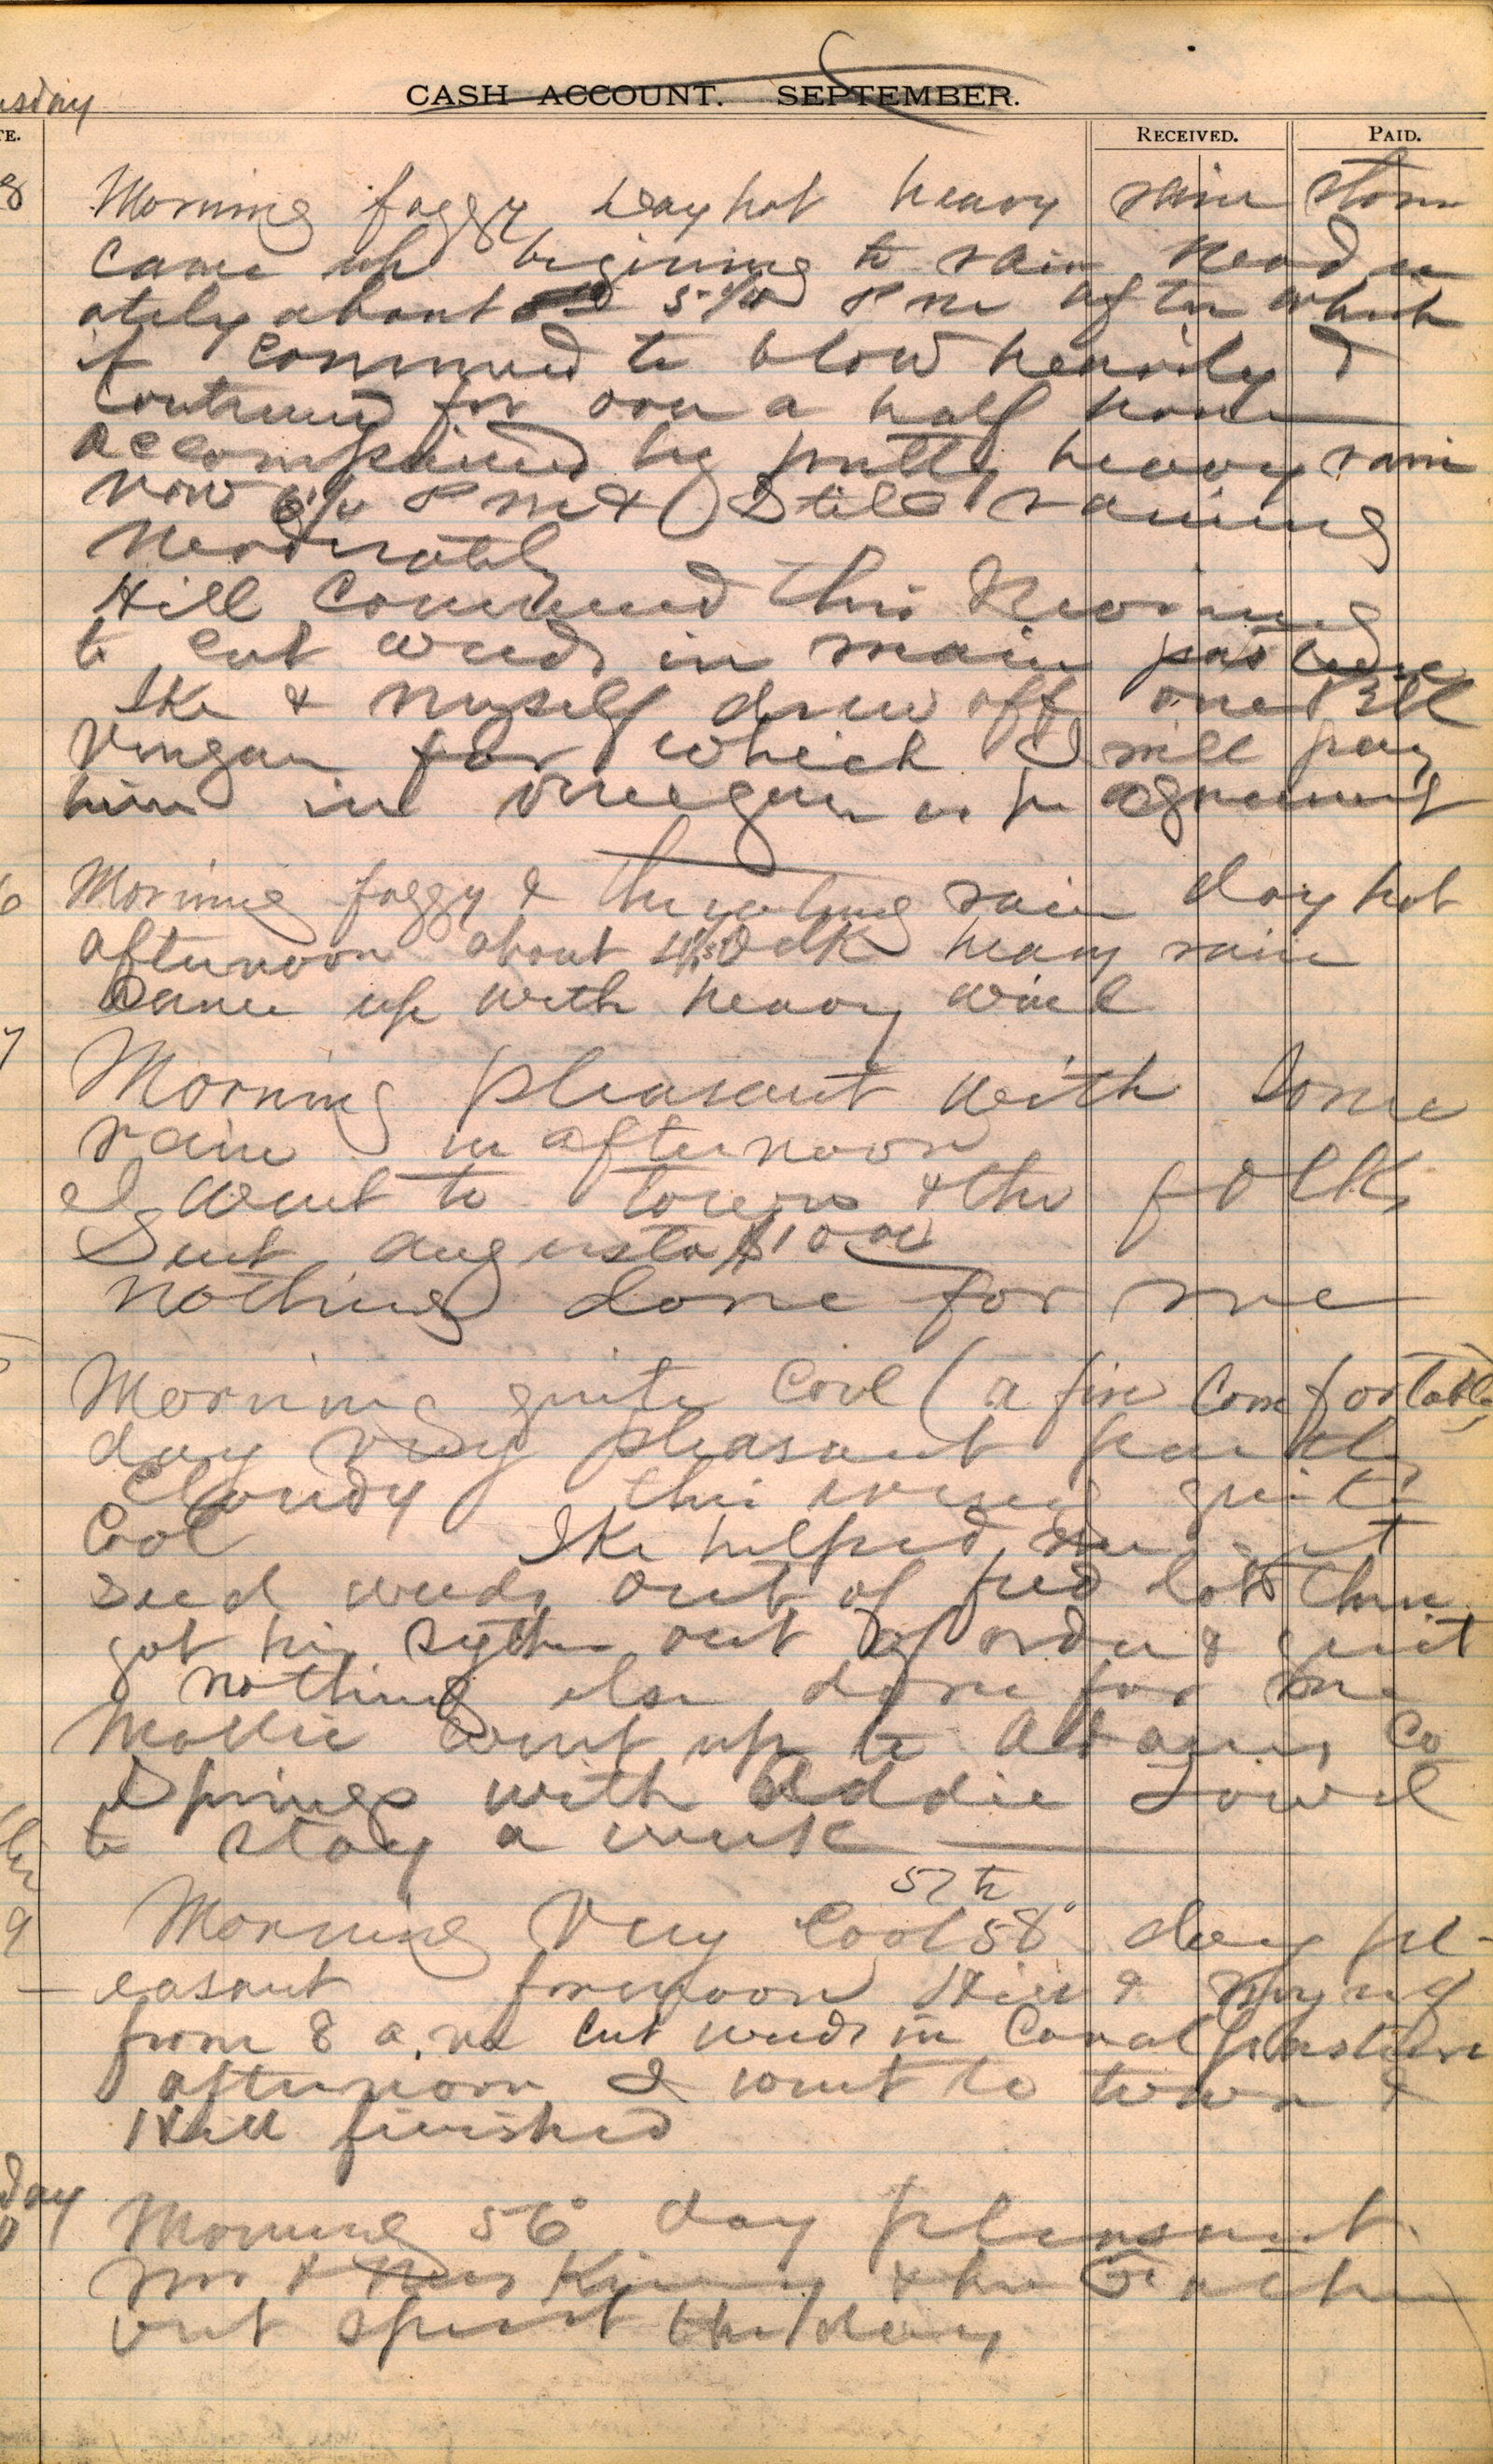 usday
CASH ACCOUNT. SEPTEMBER.
TE. RECEIVED. PAID.
8 Morning foggy day hot heavy rain storm
came up begining to rain moder
ately about 5 1/4 P m after which
it commed to blow heavily &
continued for over a half hour
accompained by pretty heavy rain
now 6 1/4 P m & Still raining
Moderately
Hill Commened this Morning
to cut weeds in main pasture
Ike & myself drew off one Bbl
Vinegar for which I will pay
him in vinegar as per agreement
6 Morning foggy & rain day hot
afternoon about heavy rain
Came up with heavy wind
7 Morning pleasant with some
rain in afternoon
I went to town & the folks
Sent Augusta $10 00
Nothing done for me
Morning quite Cool (a fine Comfortable
day very pleasant partly
Cloudy this evening quite
Cool Ike helped me cut
seed weeds out of feed lot then
got his sythe out of order & quit
nothing else done for me
Mollie went up to Adams Co
Springs with Addie Lowel
to stay a week
57 to
9 Morning Very Cool 58° day pl-
easant forenoon Hill & myself
from 8 a.m cut weeds in Canal pasture
afternoon I went to town &
Hill finished
day
0 Morning 56° day pleasant
Mr & Mrs & her
out spent the day